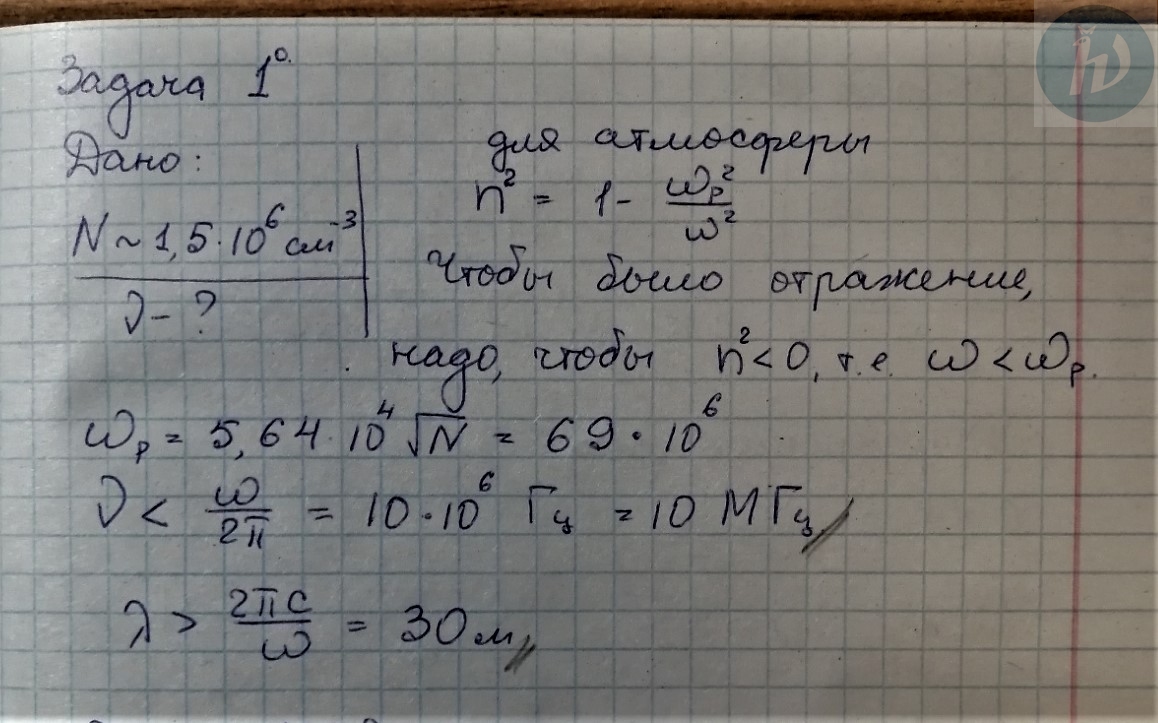 Задача 1°.
Дано:
для атмосферы
n² = 1 - ωₚ²/ω²
N ~ 1,5·10⁶ см⁻³
Чтобы было отражение,
ν - ?
надо, чтобы n² < 0, т.е. ω < ωₚ.
ωₚ = 5,64·10⁴ √N = 69·10⁶
ν < ω/2π = 10·10⁶ Гц = 10 МГц
λ > 2πc/ω = 30 м